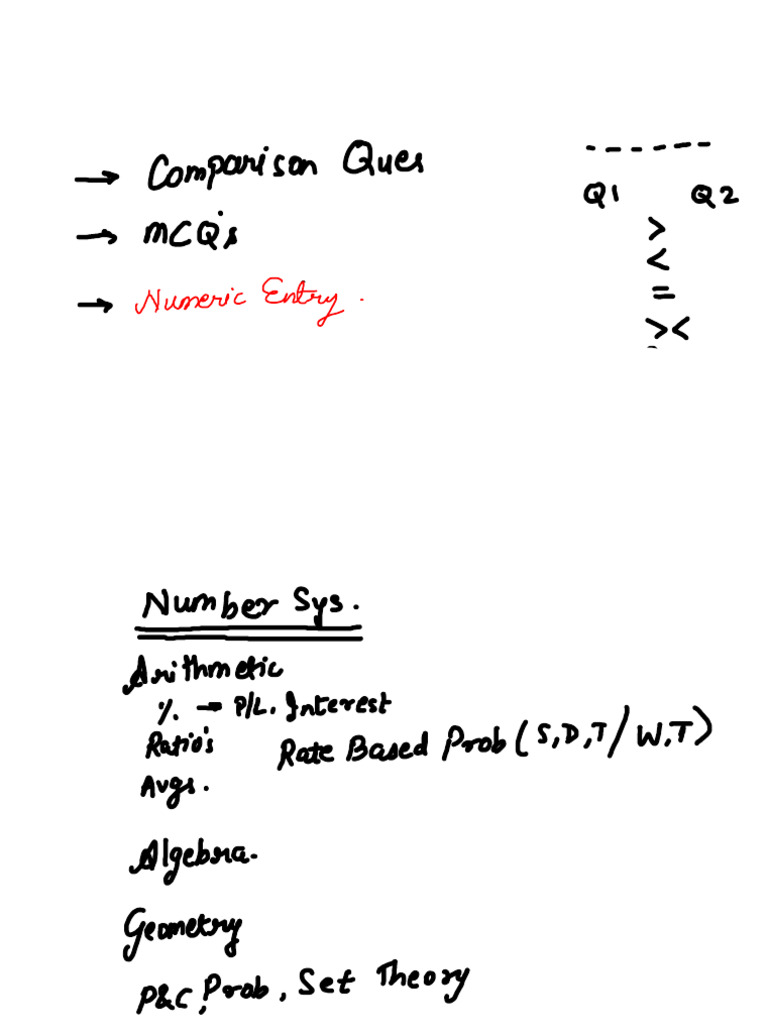 → Comparison Ques
→ MCQ's
→ Numeric Entry.
------
Q1 Q2
>
<
=
><
Number Sys.
Arithmetic
%. → P/L. Interest
Ratio's Rate Based Prob (S,D,T/W,T)
Avgs.
Algebra.
Geometry
P&C, Prob, Set Theory